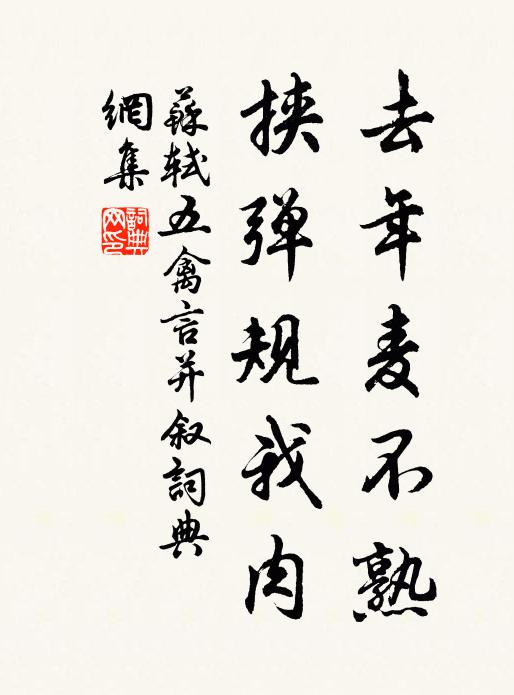 去年麦不熟
挟弹规我肉
蘇轼五禽言并叙詞典
網集
詞典
网印